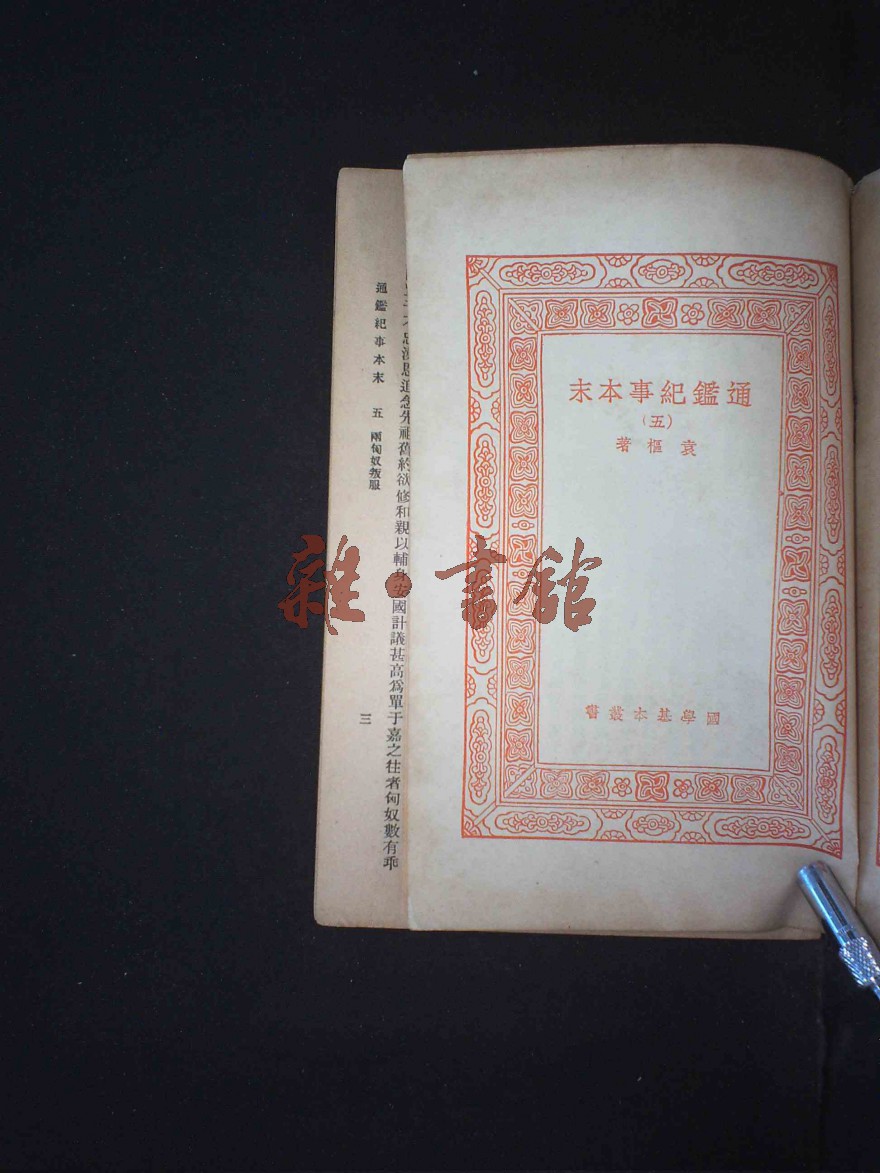 通鑑紀事本末
(五)
袁樞著
國學基本叢書
忠漢恩追念先祖舊約欲修和親以輔身安國計議甚高爲單于嘉之往者匈奴數有乖
通鑑紀事本末 五 兩匈奴叛服
三
雜·書館